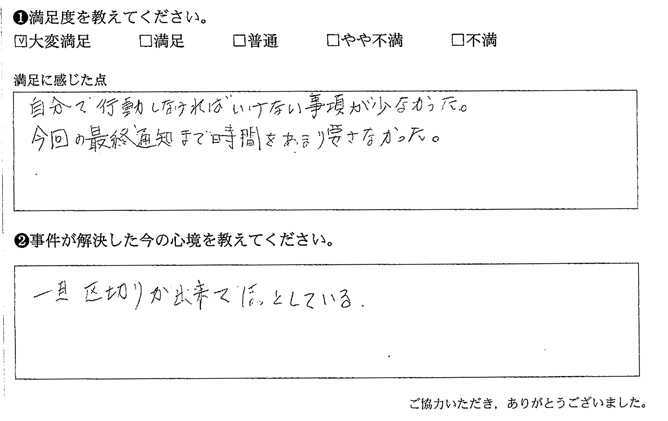 ❶満足度を教えてください。
☑大変満足 □満足 □普通 □やや不満 □不満
満足に感じた点
自分で行動しなければいけない事項が少なかった。
今回の最終通知まで時間をあまり要さなかった。
❷事件が解決した今の心境を教えてください。
一旦区切りが出来てほっとしている.
ご協力いただき，ありがとうございました。